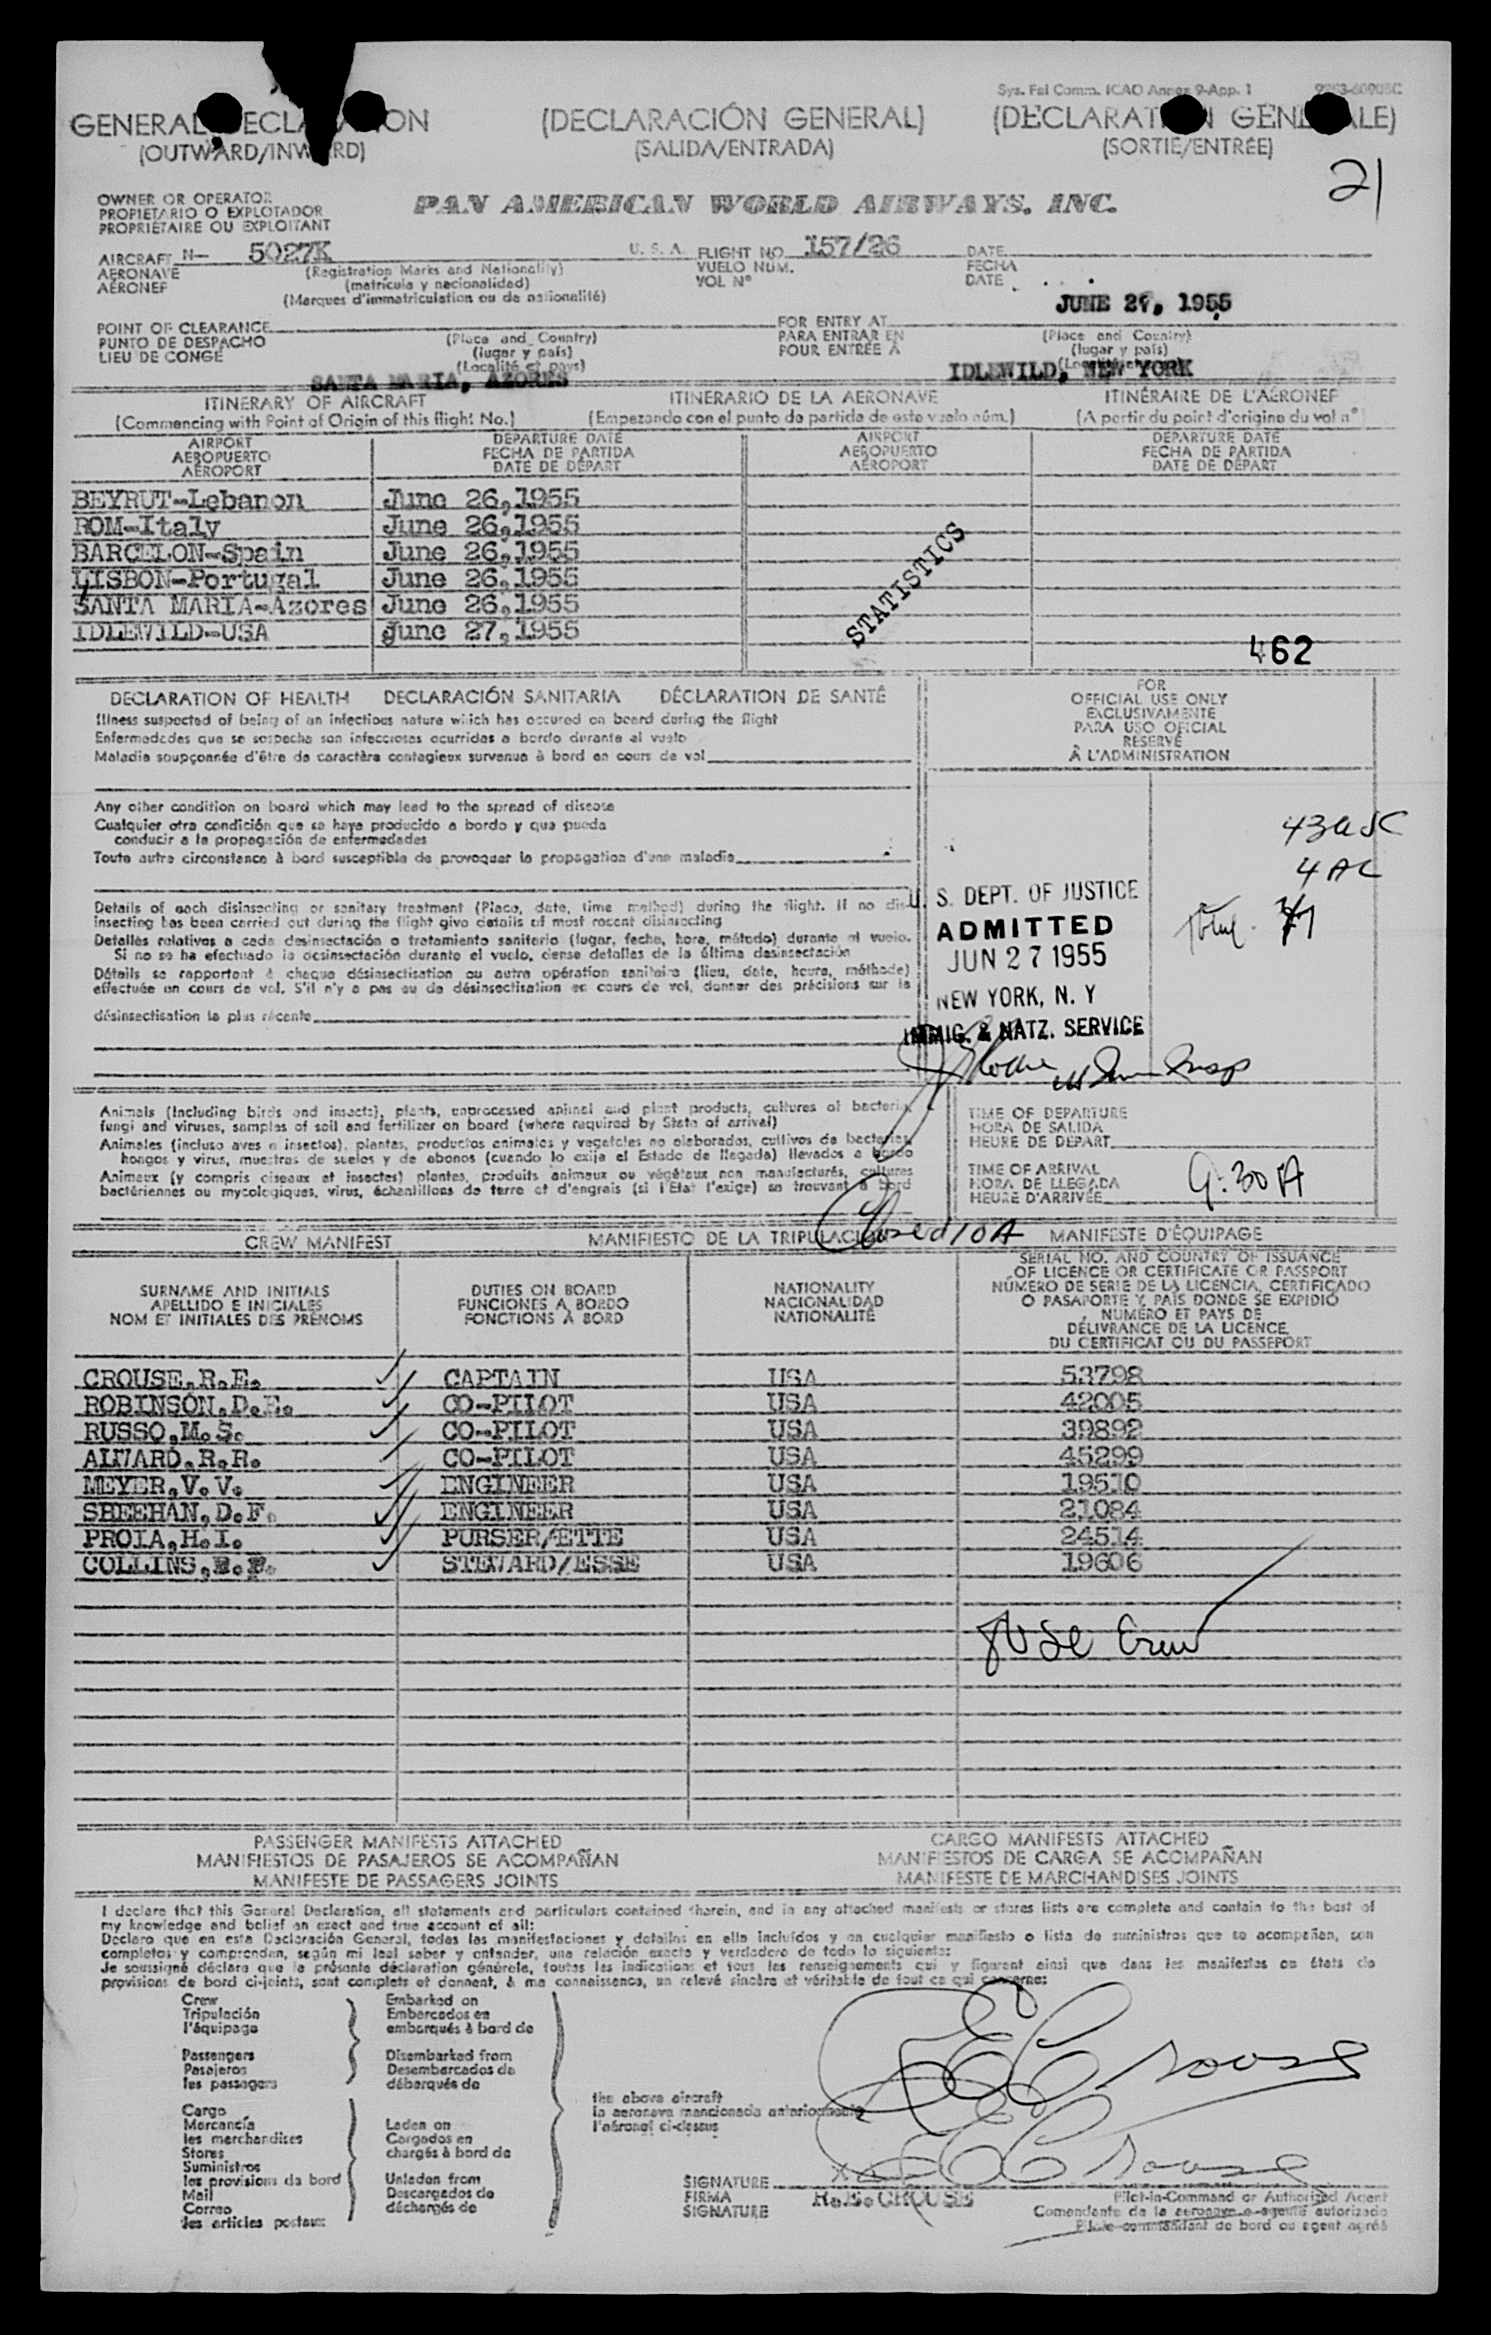 Sys. Fal Comm. ICAO Annex 9-App. 1
GENERAL DECLARATION
(OUTWARD/INWARD)
(DECLARACIÓN GENERAL)
(SALIDA/ENTRADA)
(DÉCLARATION GÉNÉRALE)
(SORTIE/ENTRÉE)
21
OWNER OR OPERATOR
PROPIETARIO O EXPLOTADOR
PROPRIÉTAIRE OU EXPLOITANT
PAN AMERICAN WORLD AIRWAYS, INC.
AIRCRAFT N- 5027K U. S. A.
AERONAVE
AÉRONEF
(Registration Marks and Nationality)
(matrícula y nacionalidad)
(Marques d'immatriculation ou de nationalité)
FLIGHT NO. 157/26
VUELO NÚM.
VOL Nº
DATE
FECHA
DATE
JUNE 27, 1955
POINT OF CLEARANCE
PUNTO DE DESPACHO
LIEU DE CONGÉ
(Place and Country)
(lugar y país)
(Localité et pays)
SANTA MARIA, AZORES
FOR ENTRY AT
PARA ENTRAR EN
POUR ENTRÉE À
(Place and Country)
(lugar y país)
IDLEWILD, NEW YORK
ITINERARY OF AIRCRAFT
(Commencing with Point of Origin of this flight No.)
ITINERARIO DE LA AERONAVE
(Empezando con el punto de partida de este vuelo núm.)
ITINÉRAIRE DE L'AÉRONEF
(A partir du point d'origine du vol nº
AIRPORT
AEROPUERTO
AÉROPORT
DEPARTURE DATE
FECHA DE PARTIDA
DATE DE DÉPART
AIRPORT
AEROPUERTO
AÉROPORT
DEPARTURE DATE
FECHA DE PARTIDA
DATE DE DÉPART
BEYRUT-Lebanon June 26,1955
ROM-Italy June 26,1955
BARCELON-Spain June 26,1955
LISBON-Portugal June 26,1955
SANTA MARIA-Azores June 26,1955
IDLEWILD-USA June 27,1955
STATISTICS
462
DECLARATION OF HEALTH DECLARACIÓN SANITARIA DÉCLARATION DE SANTÉ
Illness suspected of being of an infectious nature which has occured on board during the flight
Enfermedades que se sospecha son infecciosas ocurridas a bordo durante el vuelo
Maladie soupçonnée d'être de caractère contagieux survenue à bord en cours de vol
Any other condition on board which may lead to the spread of disease
Cualquier otra condición que se haya producido a bordo y que pueda
conducir a la propagación de enfermedades
Toute autre circonstance à bord susceptible de provoquer la propagation d'une maladie
Details of each disinsecting or sanitary treatment (Place, date, time method) during the flight. If no dis-
insecting has been carried out during the flight give details of most recent disinsecting
Detalles relativos a cada desinsectación o tratamiento sanitario (lugar, fecha, hora, método) durante el vuelo.
Si no se ha efectuado la desinsectación durante el vuelo, dense detalles de la última desinsectación
Détails se rapportant à chaque désinsectisation ou autre opération sanitaire (lieu, date, heure, méthode)
effectuée en cours de vol. S'il n'y a pas eu de désinsectisation en cours de vol, donner des précisions sur la
désinsectisation la plus récente
FOR
OFFICIAL USE ONLY
EXCLUSIVAMENTE
PARA USO OFICIAL
RÉSERVÉ
À L'ADMINISTRATION
43 USC
4 AC
Total
U. S. DEPT. OF JUSTICE
ADMITTED
JUN 27 1955
NEW YORK, N. Y
IMMIG. & NATZ. SERVICE
Animals (Including birds and insects), plants, unprocessed animal and plant products, cultures of bacteria,
fungi and viruses, samples of soil and fertilizer on board (where required by State of arrival)
Animales (incluso aves e insectos), plantas, productos animales y vegetales no elaborados, cultivos de bacterias,
hongos y virus, muestras de suelos y de abonos (cuando lo exija el Estado de llegada) llevados a bordo
Animaux (y compris oiseaux et insectes) plantes, produits animaux ou végétaux non manufacturés, cultures
bactériennes ou mycologiques, virus, échantillons de terre et d'engrais (si l'Etat l'exige) se trouvant à bord
TIME OF DEPARTURE
HORA DE SALIDA
HEURE DE DÉPART
TIME OF ARRIVAL
HORA DE LLEGADA
HEURE D'ARRIVÉE
9:30 A
Closed 10 A
CREW MANIFEST
MANIFIESTO DE LA TRIPULACIÓN
MANIFESTE D'ÉQUIPAGE
SURNAME AND INITIALS
APELLIDO E INICIALES
NOM ET INITIALES DES PRÉNOMS
DUTIES ON BOARD
FUNCIONES A BORDO
FONCTIONS À BORD
NATIONALITY
NACIONALIDAD
NATIONALITÉ
SERIAL NO. AND COUNTRY OF ISSUANCE
OF LICENCE OR CERTIFICATE OR PASSPORT
NÚMERO DE SERIE DE LA LICENCIA, CERTIFICADO
O PASAPORTE Y PAÍS DONDE SE EXPIDIÓ
NUMÉRO ET PAYS DE
DÉLIVRANCE DE LA LICENCE,
DU CERTIFICAT OU DU PASSEPORT
CROUSE,R.E. CAPTAIN USA 53798
ROBINSON,D.E. CO-PILOT USA 42005
RUSSO,M.S. CO-PILOT USA 39892
ALWARD,R.R. CO-PILOT USA 45299
MEYER,V.V. ENGINEER USA 19510
SHEEHAN,D.F. ENGINEER USA 21084
PROIA,H.I. PURSER/ETTE USA 24514
COLLINS, STEWARD/ESSE USA 19606
8 USC Crew
PASSENGER MANIFESTS ATTACHED
MANIFIESTOS DE PASAJEROS SE ACOMPAÑAN
MANIFESTE DE PASSAGERS JOINTS
CARGO MANIFESTS ATTACHED
MANIFIESTOS DE CARGA SE ACOMPAÑAN
MANIFESTE DE MARCHANDISES JOINTS
I declare that this General Declaration, all statements and particulars contained therein, and in any attached manifests or stores lists are complete and contain to the best of
my knowledge and belief an exact and true account of all:
Declaro que en esta Declaración General, todas las manifestaciones y detalles en ella incluídos y en cualquier manifiesto o lista de suministros que se acompañan, son
completos y comprenden, según mi leal saber y entender, una relación exacta y verdadera de todo lo siguiente:
Je soussigné déclare que la présente déclaration générale, toutes les indications et tous les renseignements qui y figurent ainsi que dans les manifestes ou états de
provisions de bord ci-joints, sont complets et donnent, à ma connaissance, un relevé sincère et véritable de tout ce qui concerne:
Crew
Tripulación
l'équipage
Embarked on
Embarcados en
embarqués à bord de
Passengers
Pasajeros
les passagers
Disembarked from
Desembarcados de
débarqués de
Cargo
Mercancía
les marchandises
Stores
Suministros
les provisions de bord
Mail
Correo
les articles postaux
Laden on
Cargados en
chargés à bord de
Unladen from
Descargados de
déchargés de
the above aircraft
la aeronave mencionada anteriormente
l'aéronef ci-dessus
RECrouse
RECrouse
SIGNATURE
FIRMA
SIGNATURE
R.E.CROUSE
Pilot-in-Command or Authorized Agent
Comandante de la aeronave o agente autorizado
Pilote commandant de bord ou agent agréé